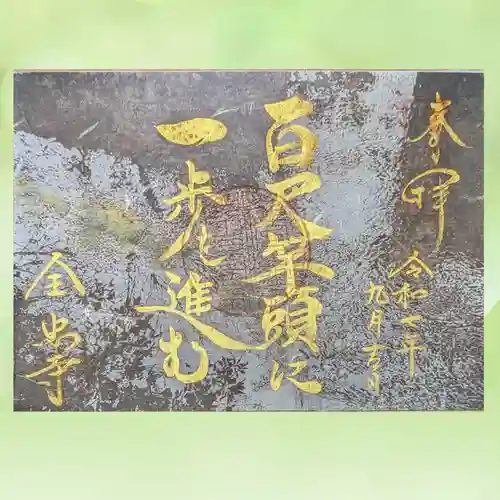 奉拝
令和七年
九月吉日
百尺竿頭に
一歩を進む
全昌寺